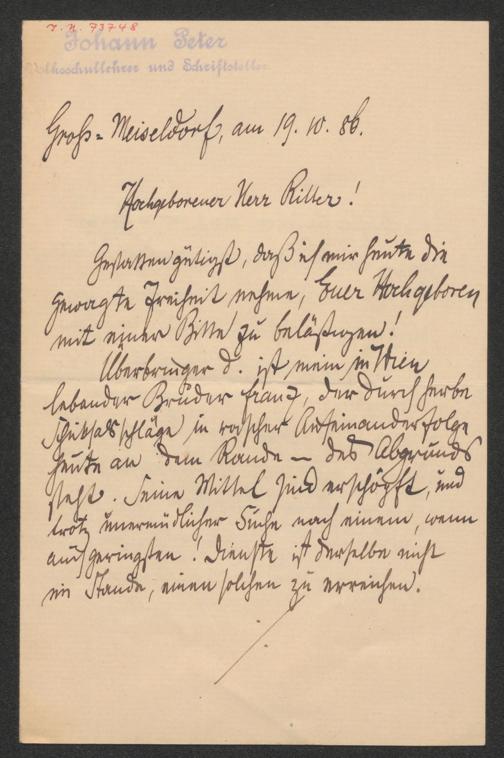 J. N. 73748
Johann Peter
Volksschullehrer und Schriftsteller
Groß-Meiseldorf, am 19. 10. 86.
Hochgeborener Herr Ritter!
Gestatten gütigst, daß ich mir heute die
gewagte Freiheit nehme, Euer Hochgeboren
mit einer Bitte zu belästigen!
Überbringer d. ist mein in Wien
lebender Bruder Franz, der durch herbe
Schiksalsschläge in rascher Aufeinanderfolge
heute an dem Rande – des Abgrunds
steht. Seine Mittel sind erschöpft, und
trotz unermüdlicher Suche nach einem, wenn
auch geringsten! Dienste ist derselbe nicht
im Stande, einen solchen zu erreichen.